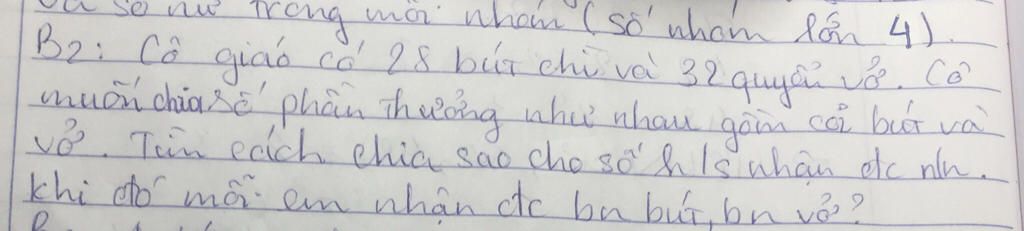 và số nữ trong mỗi nhóm (số nhóm lớn 4)
B2: Cô giáo có 28 bút chì và 32 quyển vở. Cô
muốn chia số phần thưởng như nhau gồm cả bút và
vở. Tìm cách chia sao cho số h/s nhận đc nln.
khi đó mỗi em nhận đc bn bút, bn vở?